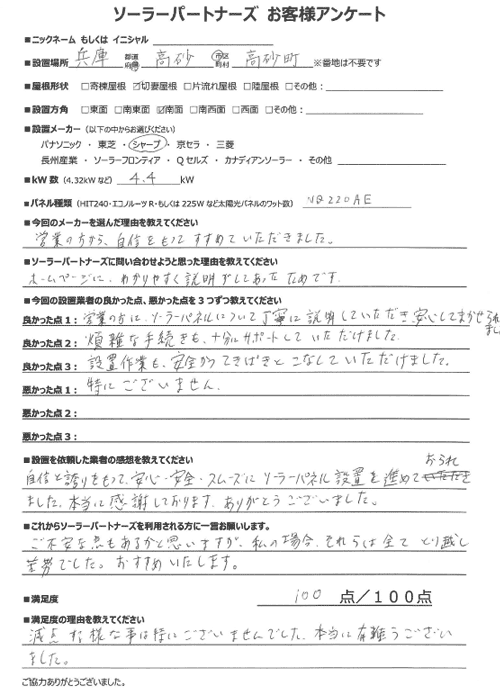 ソーラーパートナーズ お客様アンケート
■ニックネーム もしくは イニシャル
■設置場所 兵庫 都道府県 高砂 市区町村 高砂町 ※番地は不要です
■屋根形状 □寄棟屋根 ☑切妻屋根 □片流れ屋根 □陸屋根 □その他:
■設置方角 □東面 □南東面 ☑南面 □南西面 □西面 □その他:
■設置メーカー (以下の中からお選びください)
パナソニック ・ 東芝 ・ シャープ ・ 京セラ ・ 三菱
長州産業 ・ ソーラーフロンティア ・ Qセルズ ・ カナディアンソーラー ・ その他
■kW数 (4.32kWなど) 4.4 kW
■パネル種類 (HIT240・エコノルーツR・もしくは225Wなど太陽光パネルのワット数) NQ220AE
■今回のメーカーを選んだ理由を教えてください
営業の方から、自信をもってすすめていただきました。
■ソーラーパートナーズに問い合わせようと思った理由を教えてください
ホームページに、わかりやすく説明がしてあったためです。
■今回の設置業者の良かった点、悪かった点を3つずつ教えてください
良かった点1: 営業の方に、ソーラーパネルについて丁寧に説明していただき、安心してまかせられました
良かった点2: 煩雑な手続きも、十分にサポートして いただけました。
良かった点3: 設置作業も、安全かつてきぱきと こなしていただけました。
悪かった点1: 特にございません.
悪かった点2:
悪かった点3:
■設置を依頼した業者の感想を教えてください
自信と誇りをもって、安心・安全・スムーズに ソーラーパネル設置を進めておられ
ました。本当に感謝しております。ありがとうございました。
■これからソーラーパートナーズを利用される方に一言お願いします。
ご不安な点もあるかと思いますが、私の場合、それらは全て とり越し
苦労でした。おすすめいたします。
■満足度 100 点/100点
■満足度の理由を教えてください
減点する様な事は特にございませんでした。本当に有難うござい
ました。
ご協力ありがとうございました。